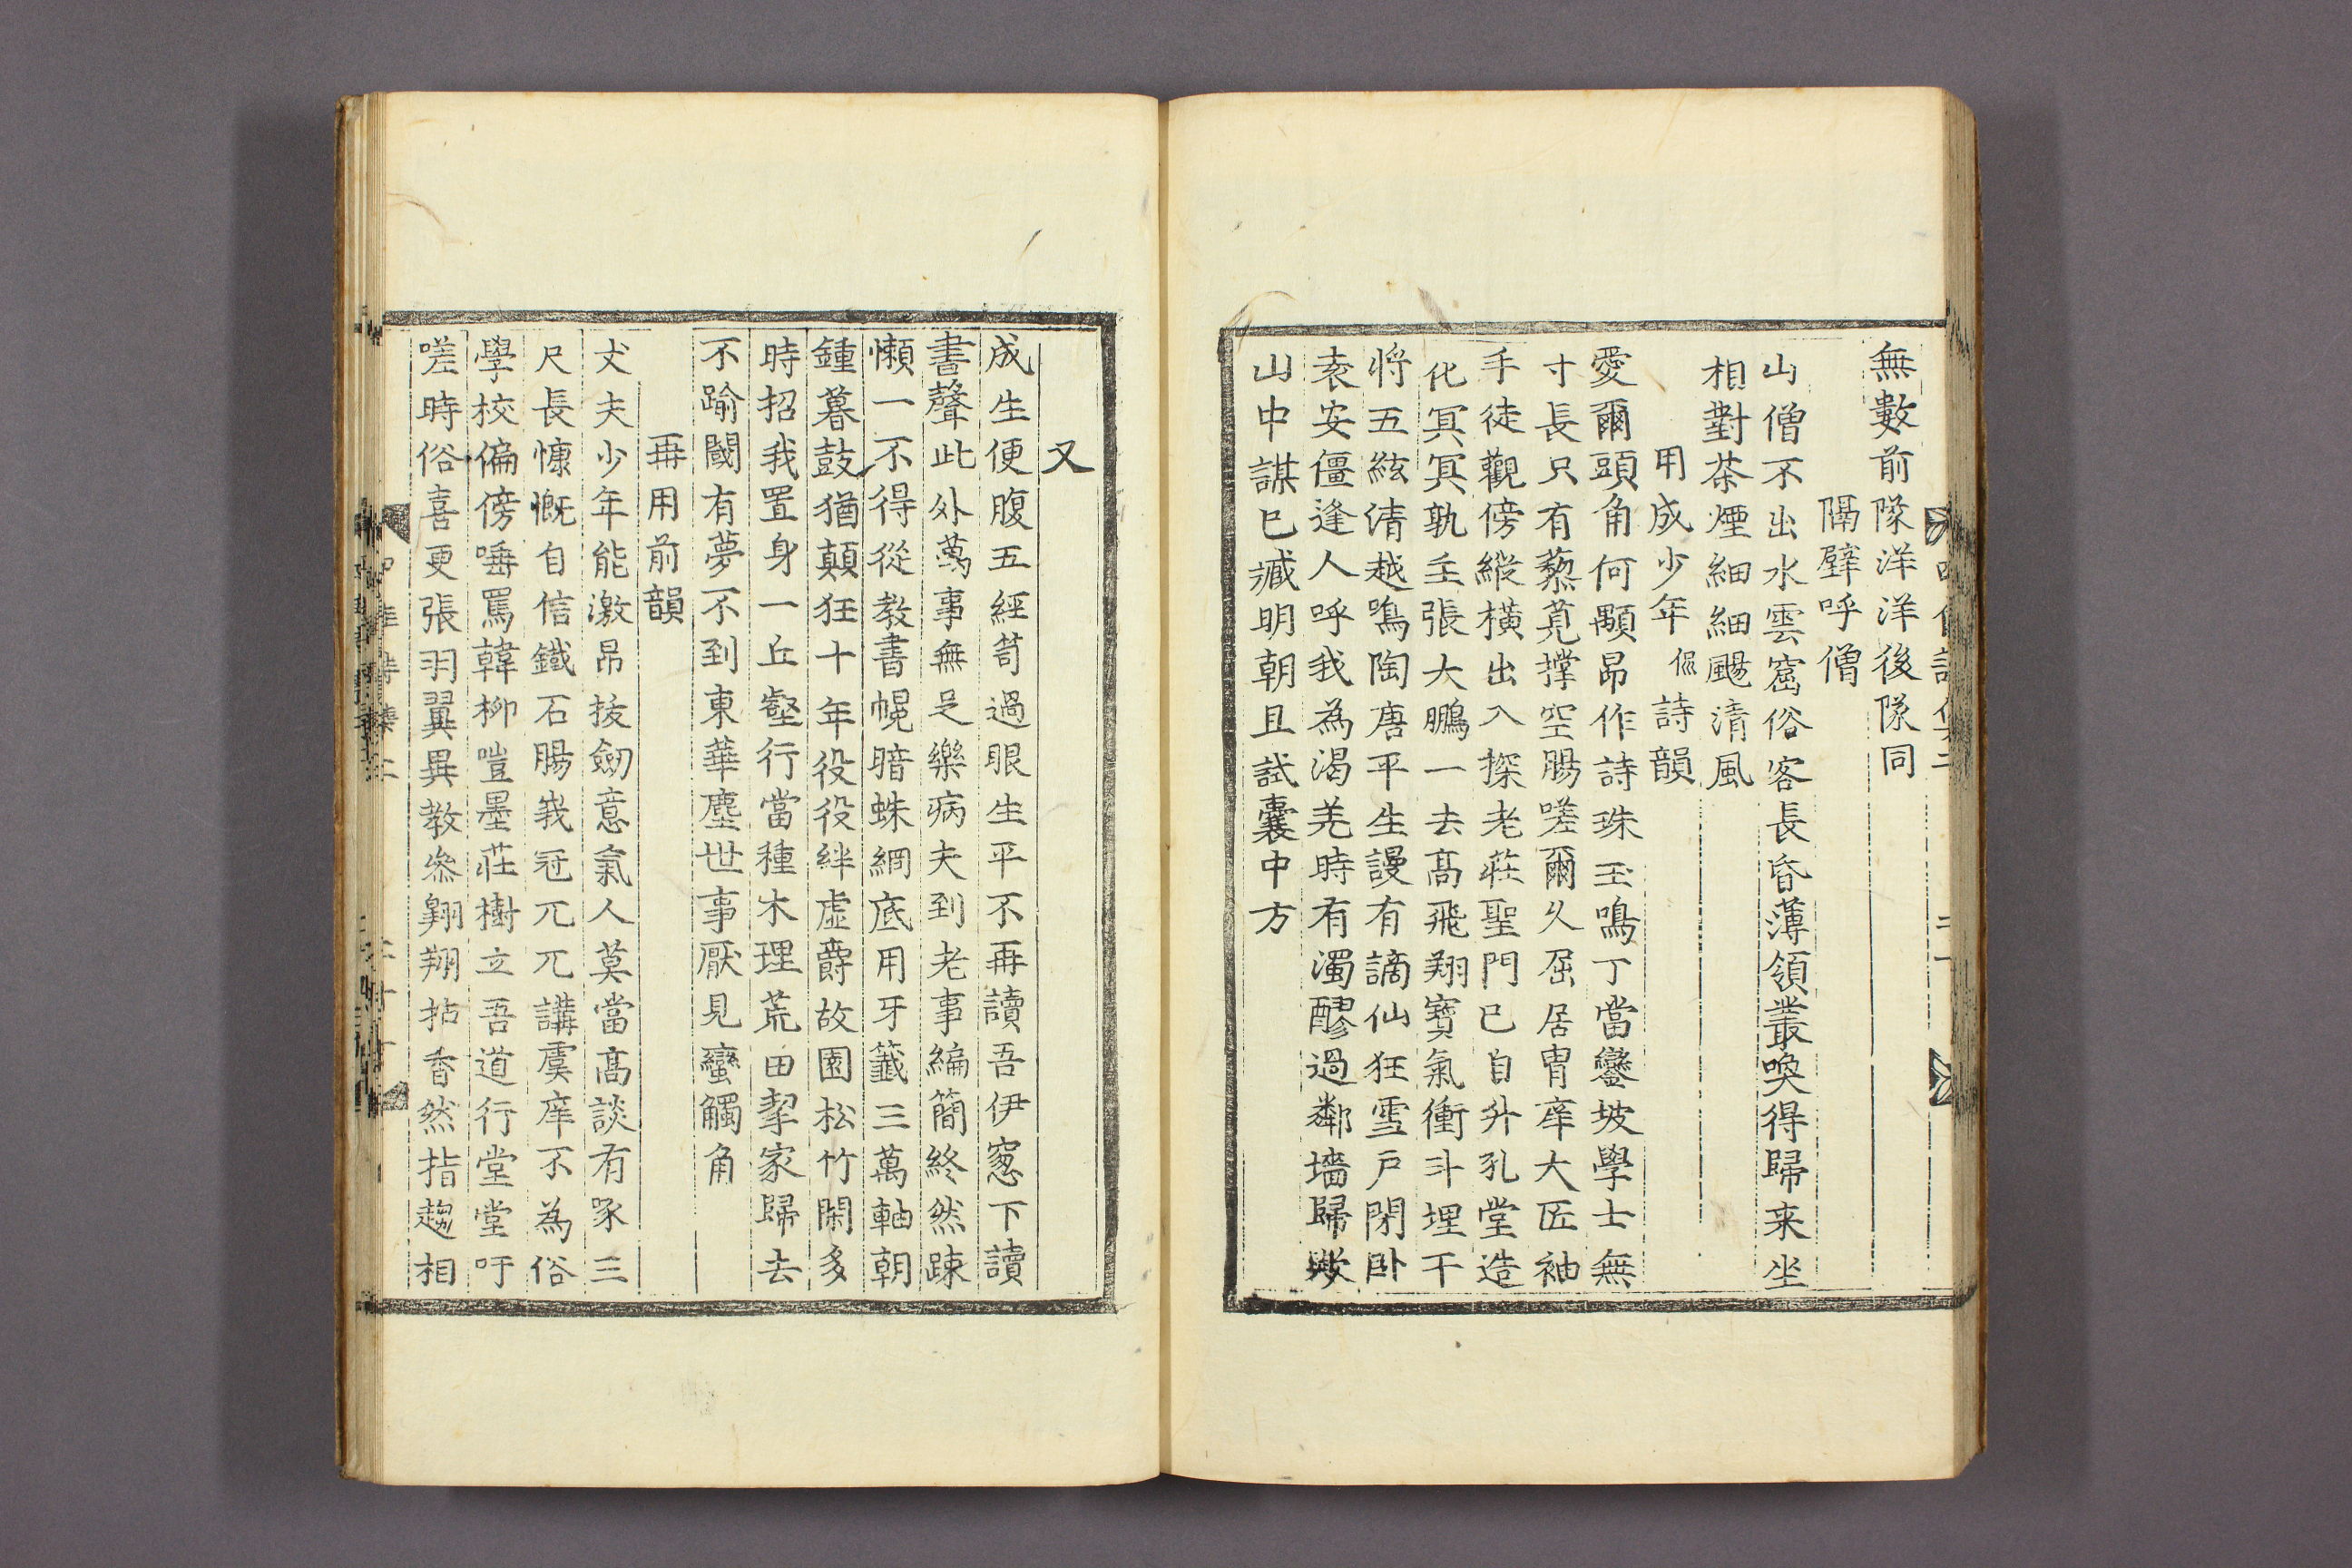 無數前隊洋洋後隊同
隔壁呼僧
山僧不出水雲窟俗客長昏薄領叢喚得歸来坐
相對茶煙細細颺清風
用成少年 詩韻
愛爾頭角何顒昻作詩珠玉鳴丁當鑾坡學士無
寸長只有藜莧撑空腸嗟爾久屈居胄庠大匠袖
手徒觀傍縱橫出入探老莊聖門已自升孔堂造
化冥冥孰主張大鵬一去髙飛翔寶氣衝斗埋干
將五絃清越鳴陶唐平生謾有謫仙狂雪戶閉卧
袁安僵逢人呼我為渴羌時有濁醪過鄰墻歸歟
山中謀已臧明朝且試囊中方
又
成生便腹五經笥過眼生平不再讀吾伊窓下讀
書聲此外萬事無足樂病夫到老事編簡終然踈
懶一不得從教書幌暗蛛網底用牙籤三萬軸朝
鍾暮鼓猶顛狂十年役役絆虛爵故園松竹閑多
時招我置身一丘壑行當種木理荒田挈家歸去
不踰閾有夢不到東華塵世事厭見蠻觸角
再用前韻
丈夫少年能激昻拔劒意氣人莫當髙談有喙三
尺長慷慨自信鐵石腸峩冠兀兀講虞庠不為俗
學校偏傍唾罵韓柳嗤墨莊樹立吾道行堂堂吁
嗟時俗喜更張羽翼異教恣翺翔拈香然指趨相